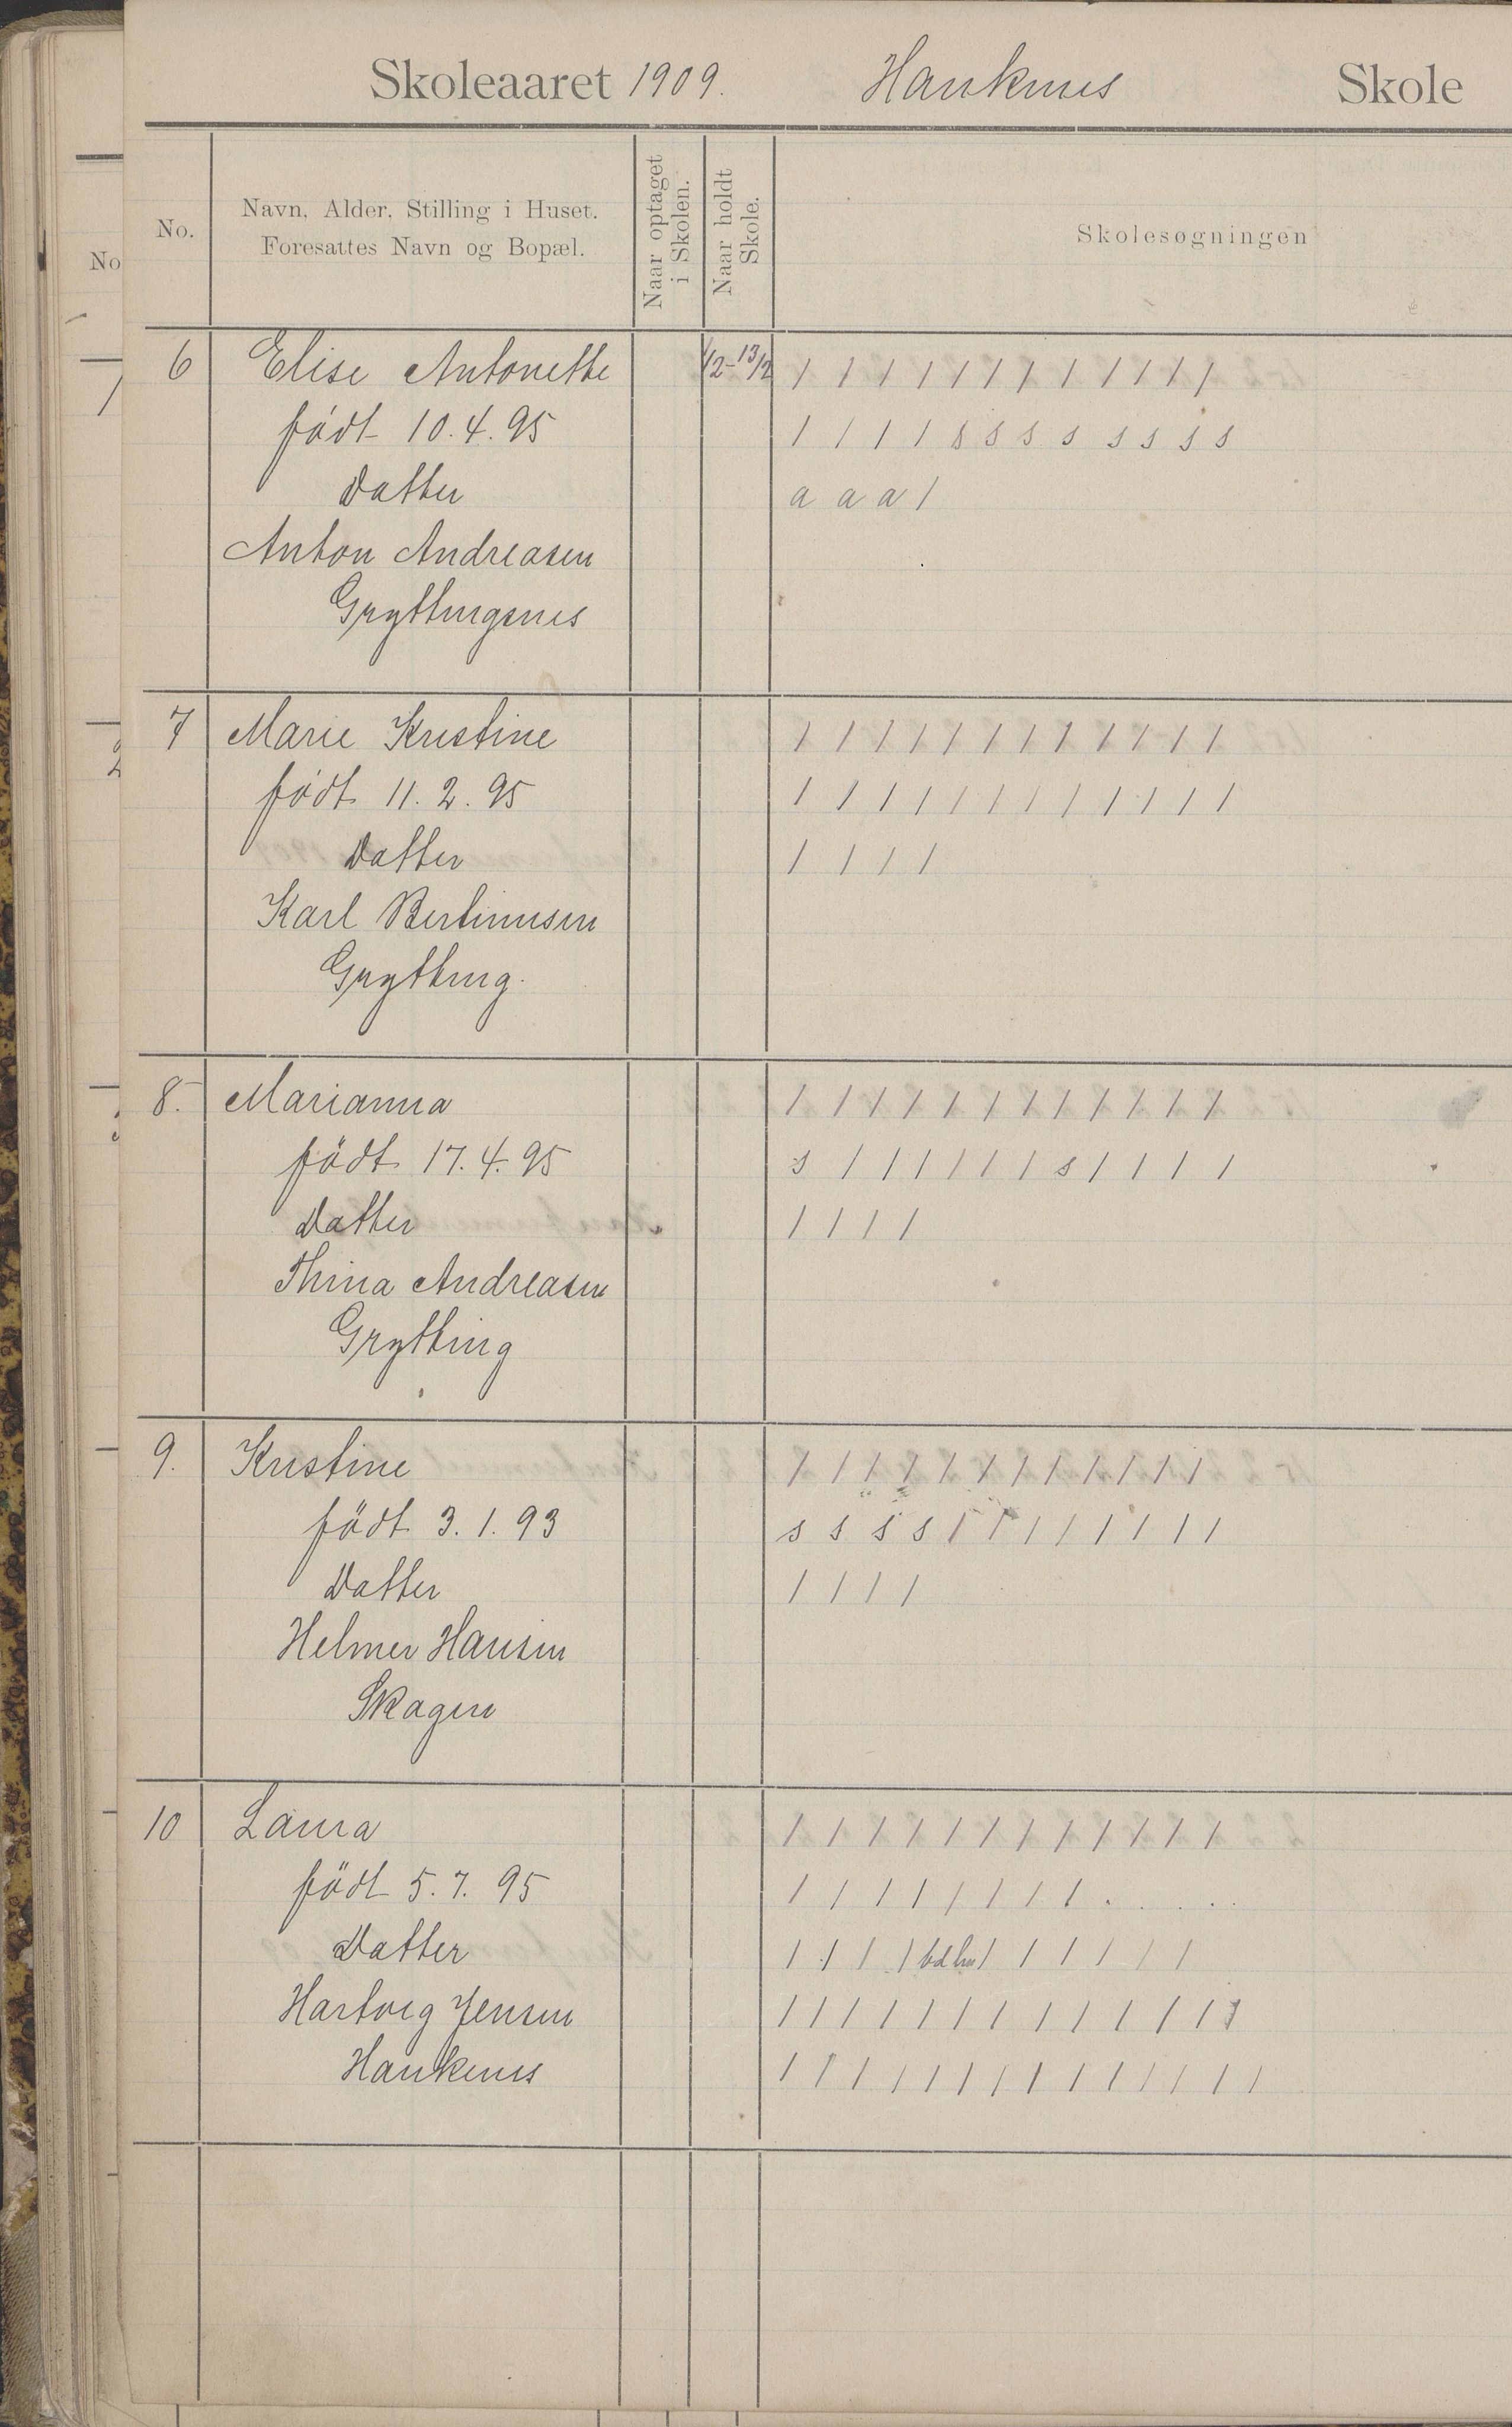 Skoleaaret 1909. Hauknes Skole
No.
Navn, Alder, Stilling i Huset.
Foresattes Navn og Bopæl.
Naar optaget
i Skolen.
Naar holdt
Skole.
Skolesøgningen
6 Elise Antonette 1/2-13/2 / / / / / / / / / / / /
født 10.4.95 / / / / s s s s s s s s
Datter a a a /
Anton Andreasen
Gryttingsnes
7 Marie Kristine / / / / / / / / / / / /
født 11.2.95 / / / / / / / / / / / /
Datter / / / /
Karl Bertinusen
Grytting.
8. Marianna / / / / / / / / / / / /
født 17.4.95 s / / / / / / s / / / /
Datter / / / /
Thina Andreasen
Grytting
9. Kristine / / / / / / / / / / / /
født 3.1.93 s s s s / / / / / / / /
Datter / / / /
Helmer Hansen
Skagen
10 Laura / / / / / / / / / / / /
født 5.7.95 / / / / / / / / . . . .
Datter / / / / / / / / / /
Hartvig Jensen / / / / / / / / / / / / /
Hauknes / / / / / / / / / / / / / /